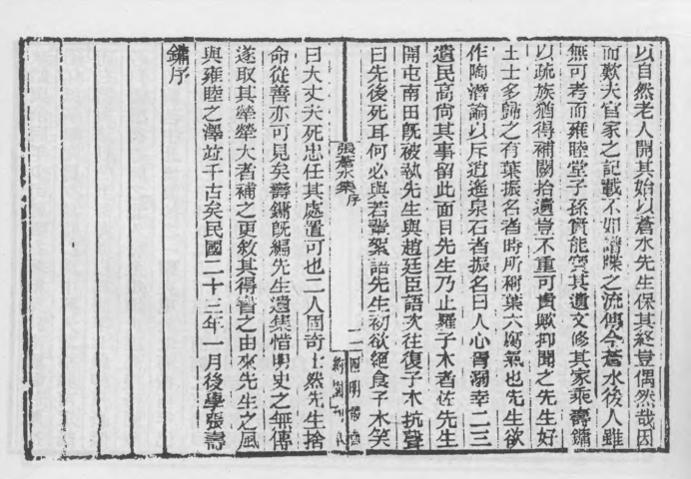 以自然老人開其始以蒼水先生保其終豈偶然哉因
而歎夫官家之記載不如譜牒之流傳今蒼水後人雖
無可考而雍睦堂子孫實能寶其遺文修其家乘壽鏞
以疏族猶得補闕拾遺豈不重可貴歟抑聞之先生好
士士多歸之有葉振名者時所稱葉六腐氣也先生欲
作陶潛論以斥逍遙泉石者振名曰人心胥溺幸二三
遺民高尚其事留此面目先生乃止羅子木者佐先生
開屯南田旣被執先生與趙廷臣語次往復子木抗聲
曰先後死耳何必與若輩絮語先生初欲絕食子木笑
張蒼水集 序
二
四明叢書
約園刊本
曰大丈夫死忠任其處置可也二人固奇士然先生捨
命從善亦可見矣壽鏞旣編先生遺集惜明史之無傳
遂取其犖犖大者補之更敘其得書之由來先生之風
與雍睦之澤竝千古矣民國二十三年一月後學張壽
鏞序